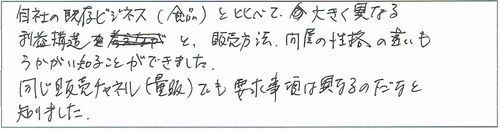 自社の既存ビジネス(食品)と比べて、大きく異なる
利益構造と、販売方法、問屋の性格の違いも
うかがい知ることができました。
同じ販売チャネル(量販)でも要求事項は異なるのだなと
知りました。